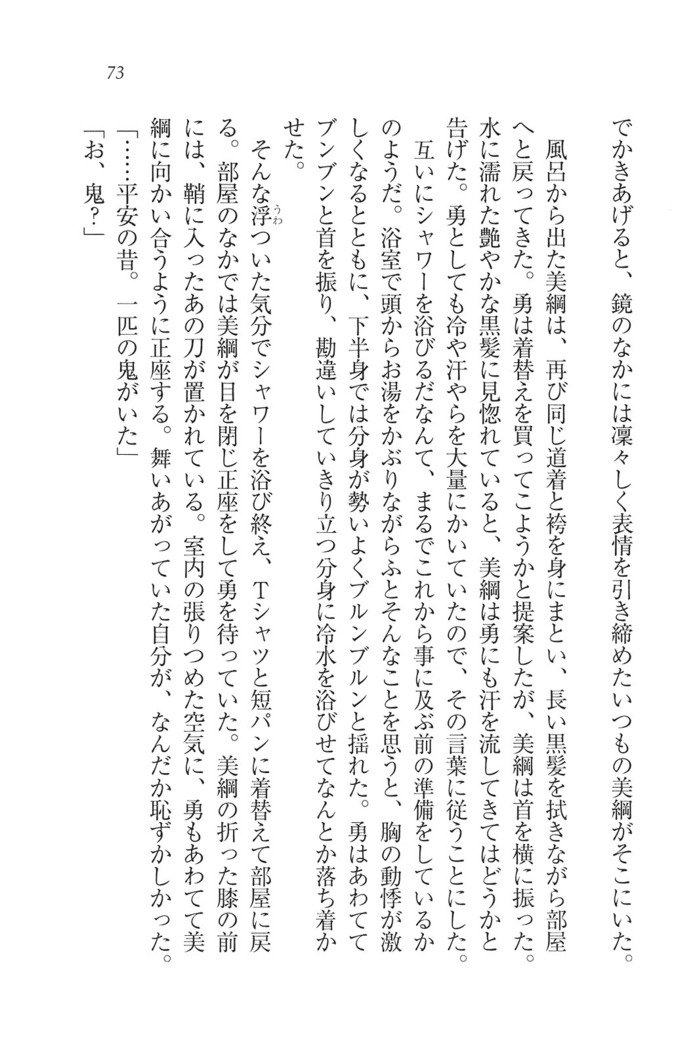 73
でかきあげると、鏡のなかには凜々しく表情を引き締めたいつもの美綱がそこにいた。
風呂から出た美綱は、再び同じ道着と袴を身にまとい、長い黒髪を拭きながら部屋
へと戻ってきた。勇は着替えを買ってこようかと提案したが、美綱は首を横に振った。
水に濡れた艶やかな黒髪に見惚れていると、美綱は勇にも汗を流してきてはどうかと
告げた。勇としても冷や汗やらを大量にかいていたので、その言葉に従うことにした。
互いにシャワーを浴びるだなんて、まるでこれから事に及ぶ前の準備をしているか
のようだ。浴室で頭からお湯をかぶりながらふとそんなことを思うと、胸の動悸が激
しくなるとともに、下半身では分身が勢いよくブルンブルンと揺れた。勇はあわてて
ブンブンと首を振り、勘違いしていきり立つ分身に冷水を浴びせてなんとか落ち着か
せた。
そんな浮ついた気分でシャワーを浴び終え、Ｔシャツと短パンに着替えて部屋に戻
うわ
る。部屋のなかでは美綱が目を閉じ正座をして勇を待っていた。美綱の折った膝の前
には、鞘に入ったあの刀が置かれている。室内の張りつめた空気に、勇もあわてて美
綱に向かい合うように正座する。舞いあがっていた自分が、なんだか恥ずかしかった。
「……平安の昔。一匹の鬼がいた」
「お、鬼？」